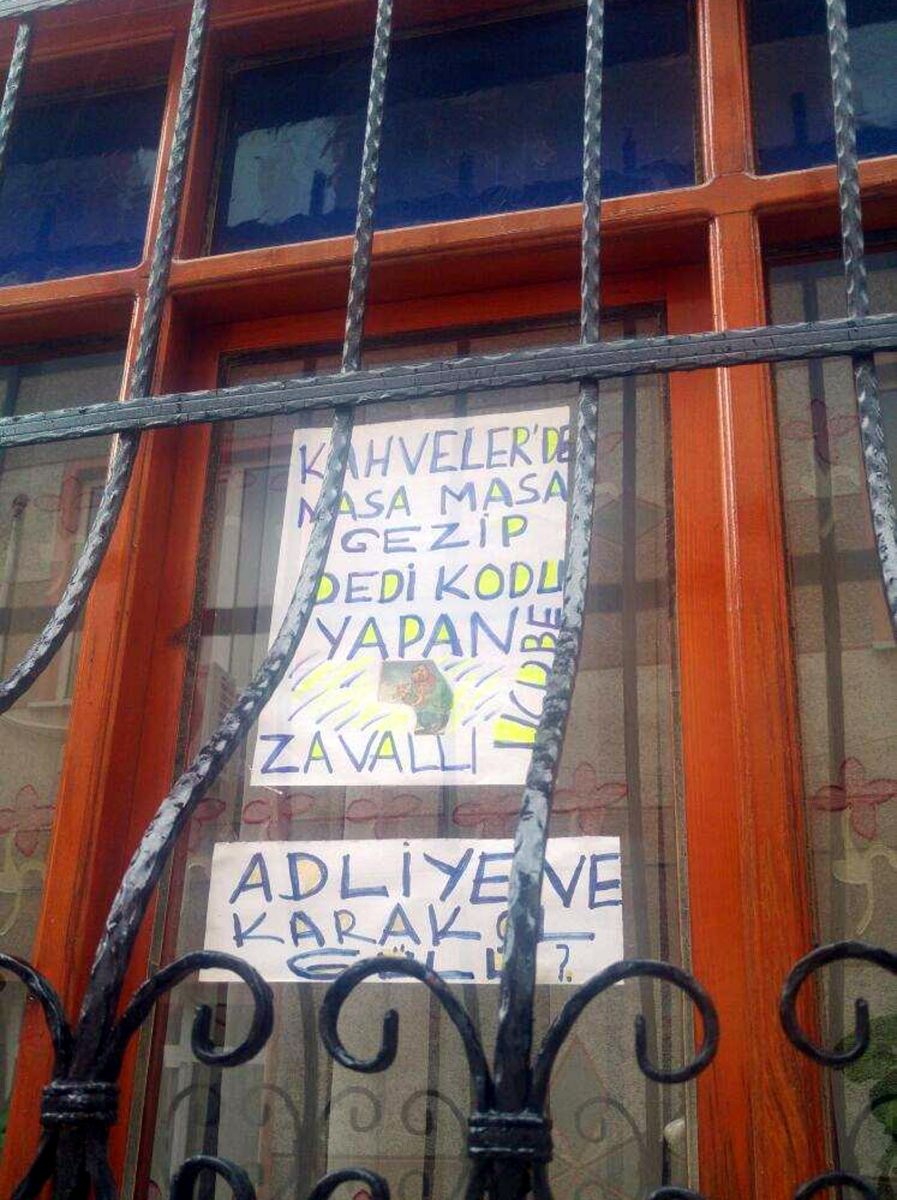 KAHVELER'DE
MASA MASA
GEZİP
DEDİ KODU
YAPAN
ZAVALLI
ADLİYE VE
KARAKOL
GÜLÜ ?